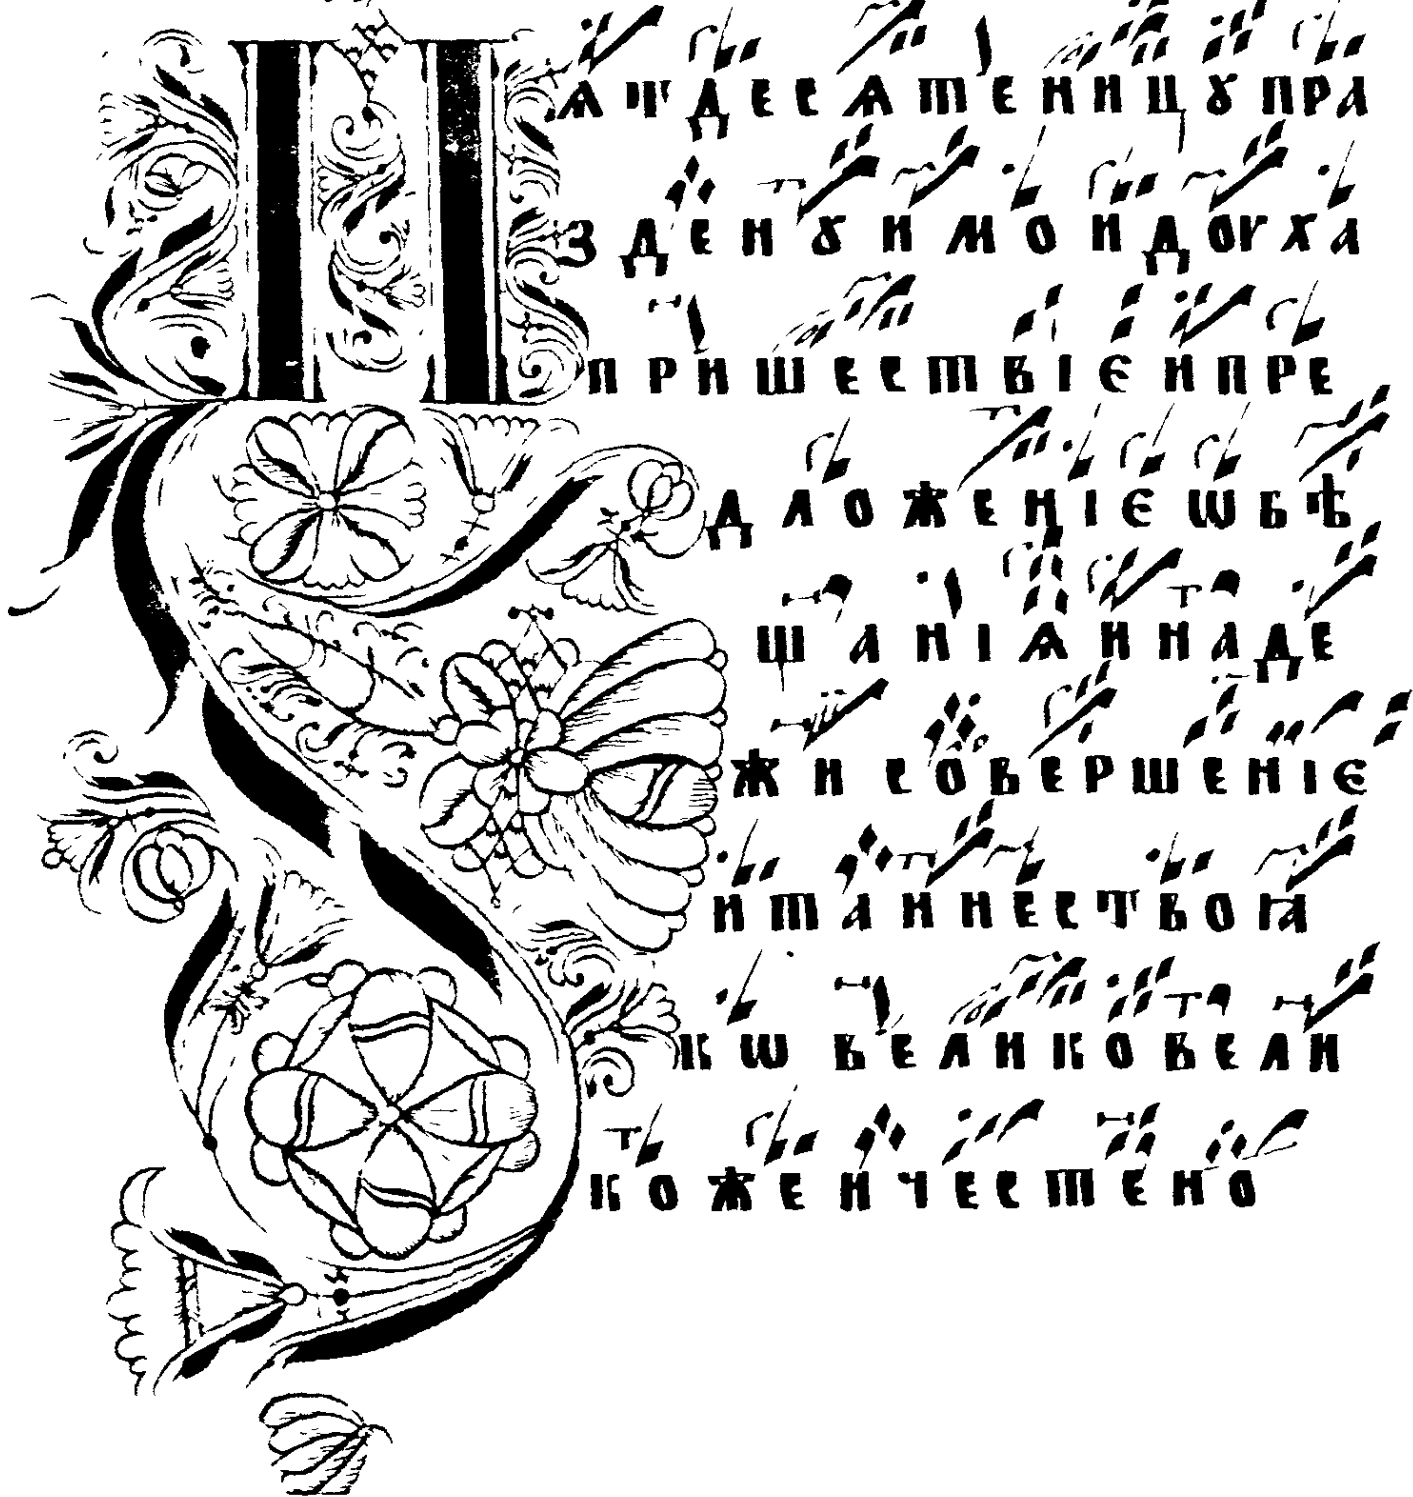 Пѧтдесѧтеницꙋ пра
зденꙋимо и доуха
пришествїе и пре
дложенїе ѡбѣ
щанїѧ и наде
жи совершенїе
и таинество ꙗ
кѡ велико вели
коже и честено